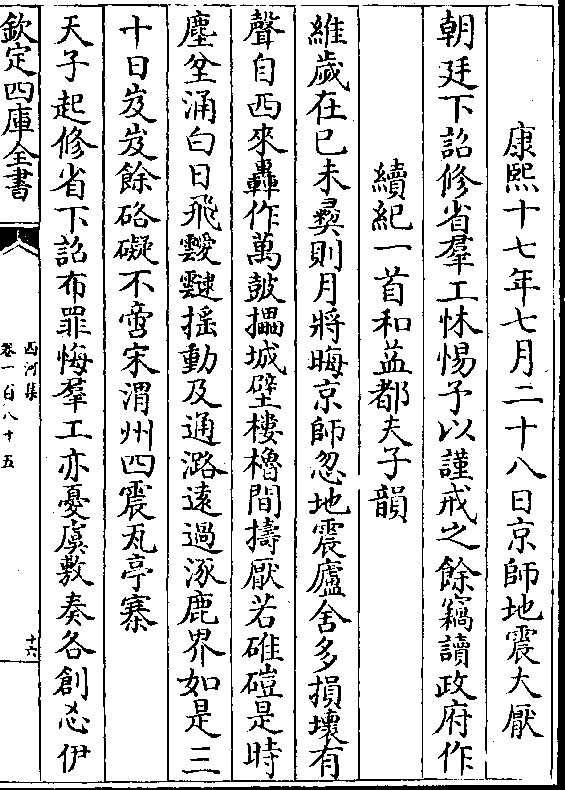 康熙十七年七月二十八日京師地震大厭
朝廷下詔修省羣工怵惕予以謹戒之餘竊讀政府作
續紀一首和益都夫子韻
維歲在已未彛則月將晦京師忽地震廬舍多損壞有
聲自西來轟作萬鼓攂城壁樓櫓間擣厭若碓磑是時
塵坌涌白日飛靉靆揺動及通潞逺過涿鹿界如是三
十日岌岌餘硌礙不啻宋渭州四震瓦亭寨
天子起修省下詔布罪悔羣工亦憂虞敷奏各創忿伊
欽定四庫全書
西河集
卷一百八十五
十六